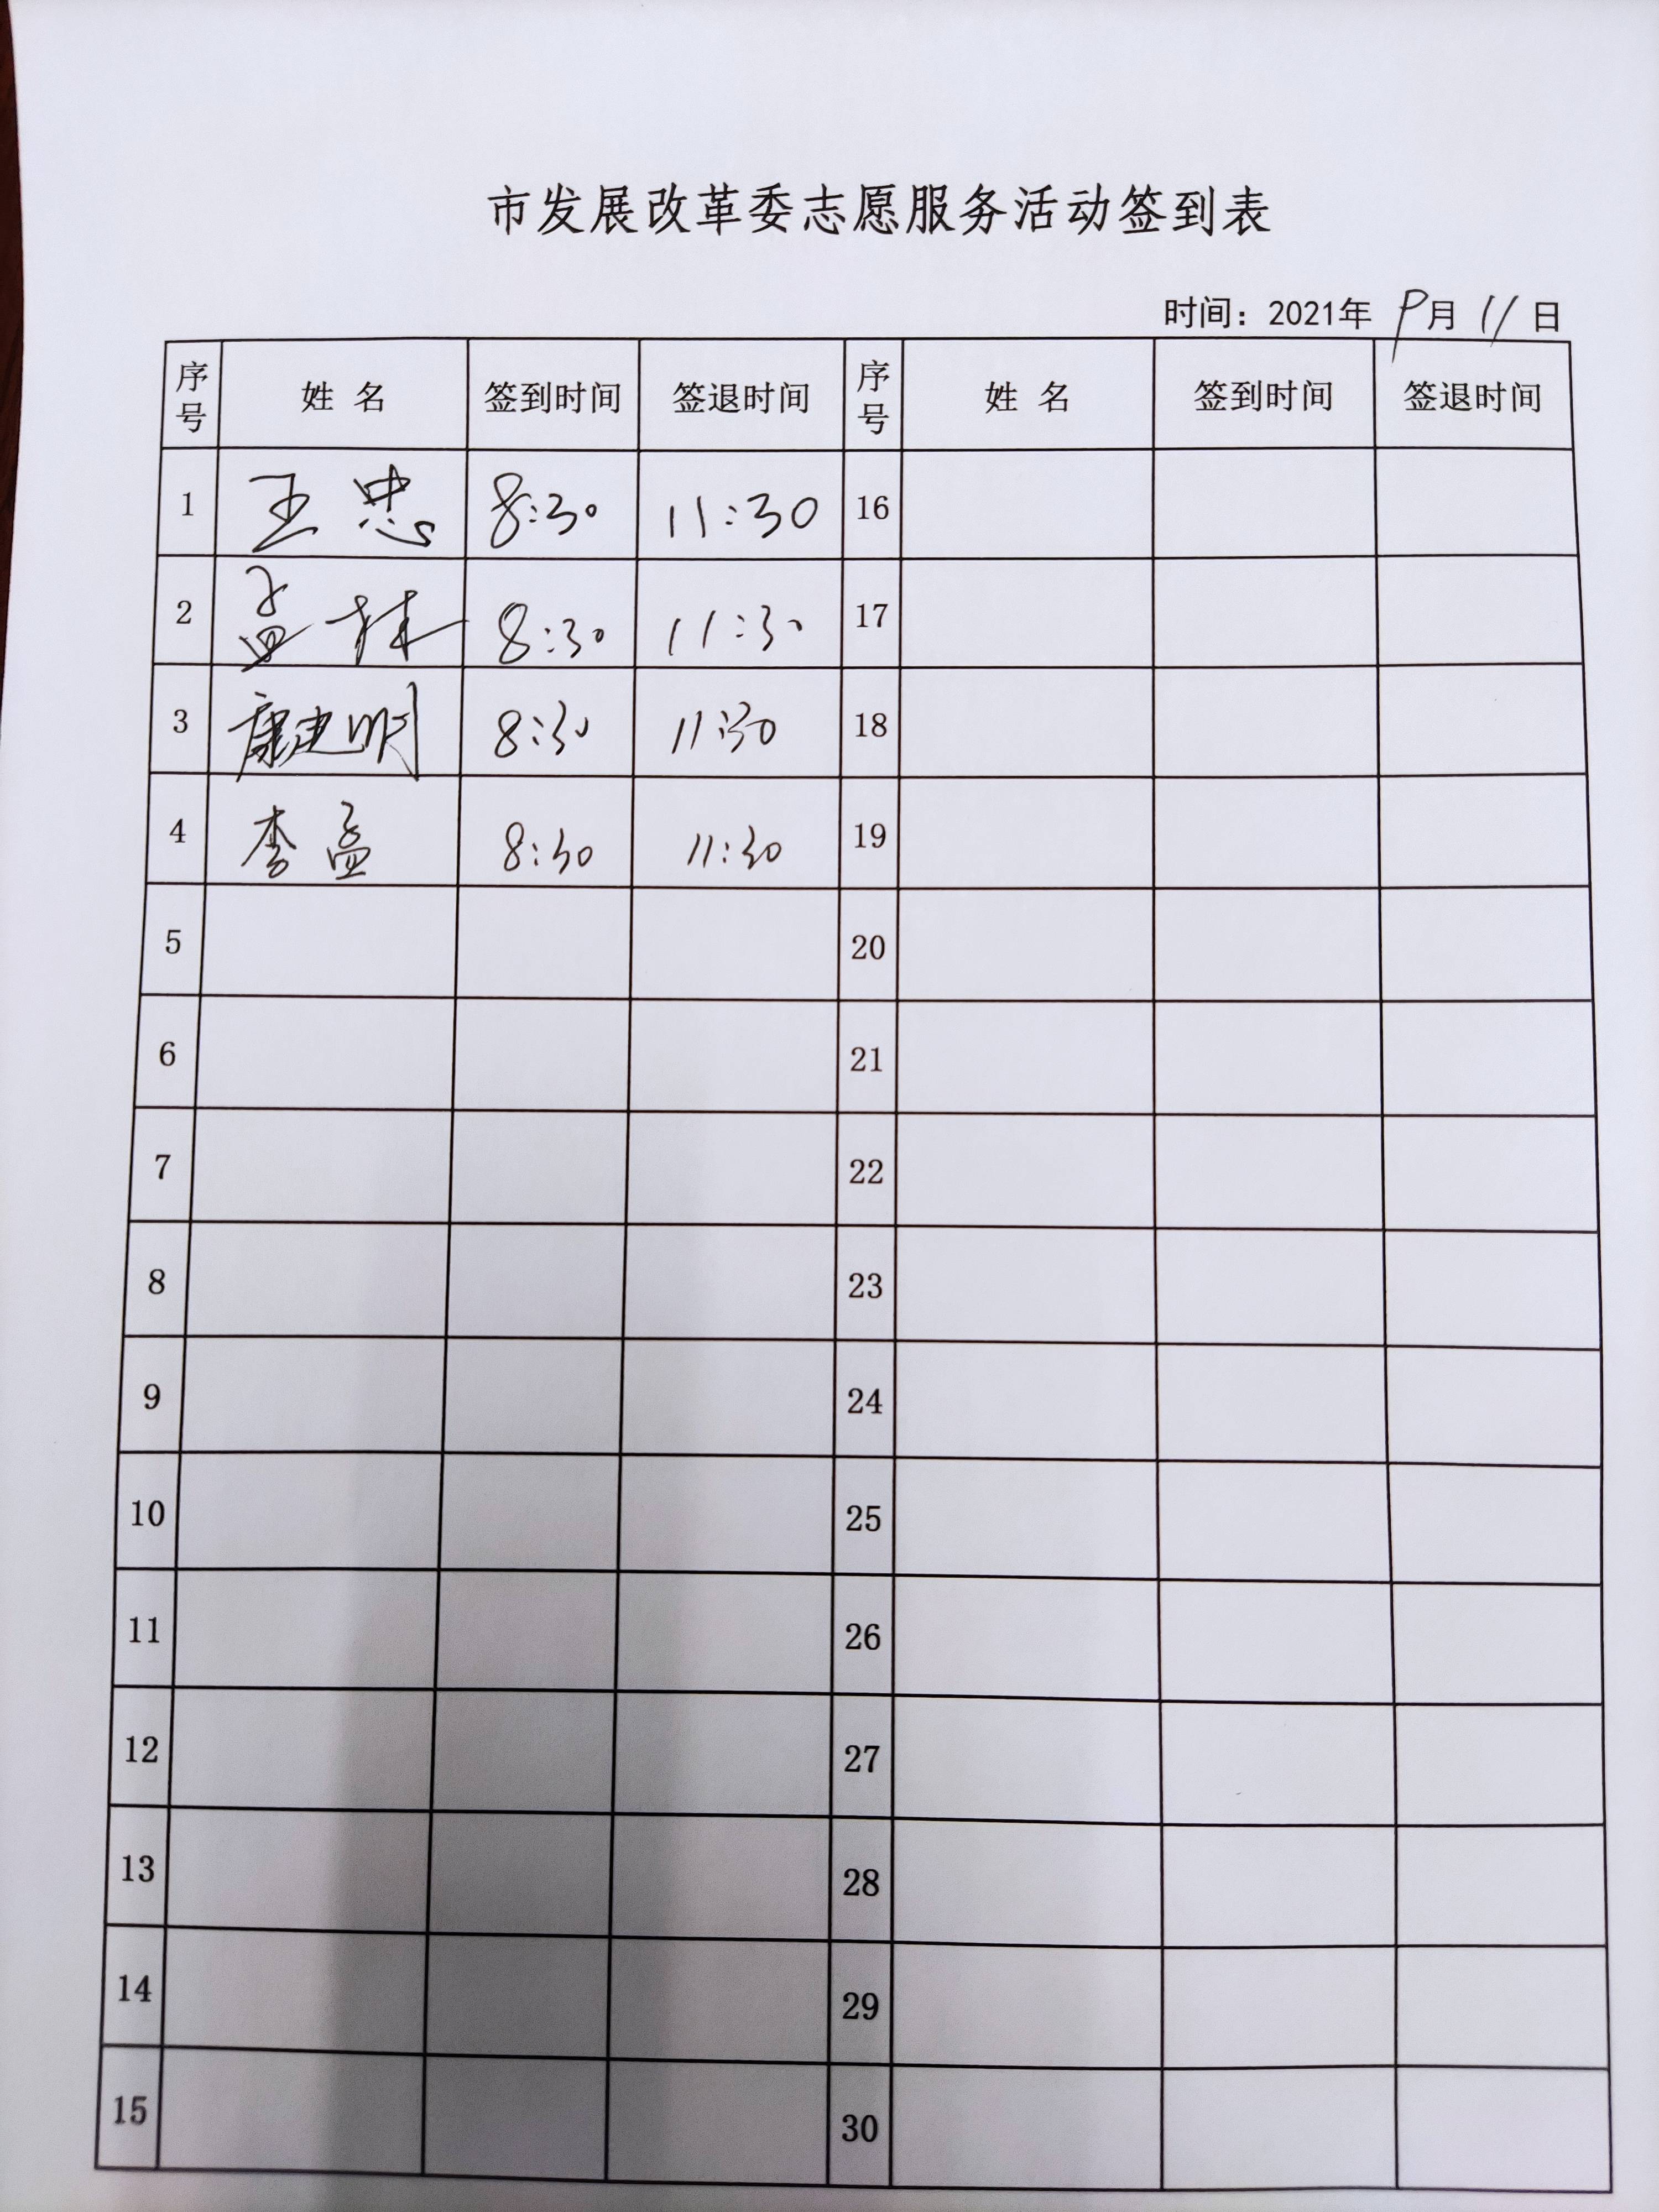 市发展改革委志愿服务活动签到表
时间：2021年 9月 11日
序号 姓名 签到时间 签退时间 序号 姓名 签到时间 签退时间
1 王忠 8:30 11:30 16
2 孟林 8:30 11:30 17
3 康建明 8:30 11:30 18
4 李孟 8:30 11:30 19
5 20
6 21
7 22
8 23
9 24
10 25
11 26
12 27
13 28
14 29
15 30